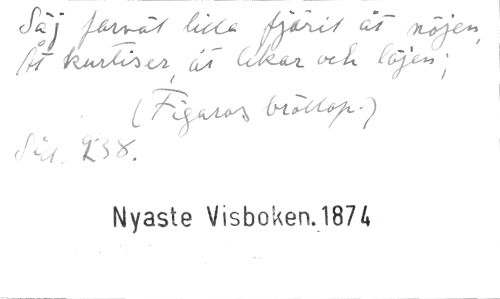 Säj farväl lilla fjäril åt nöjen,
Åt kurtiser, åt lekar och löjen;
(Figaros bröllop.)
Sid. 238.
Nyaste Visboken. 1874